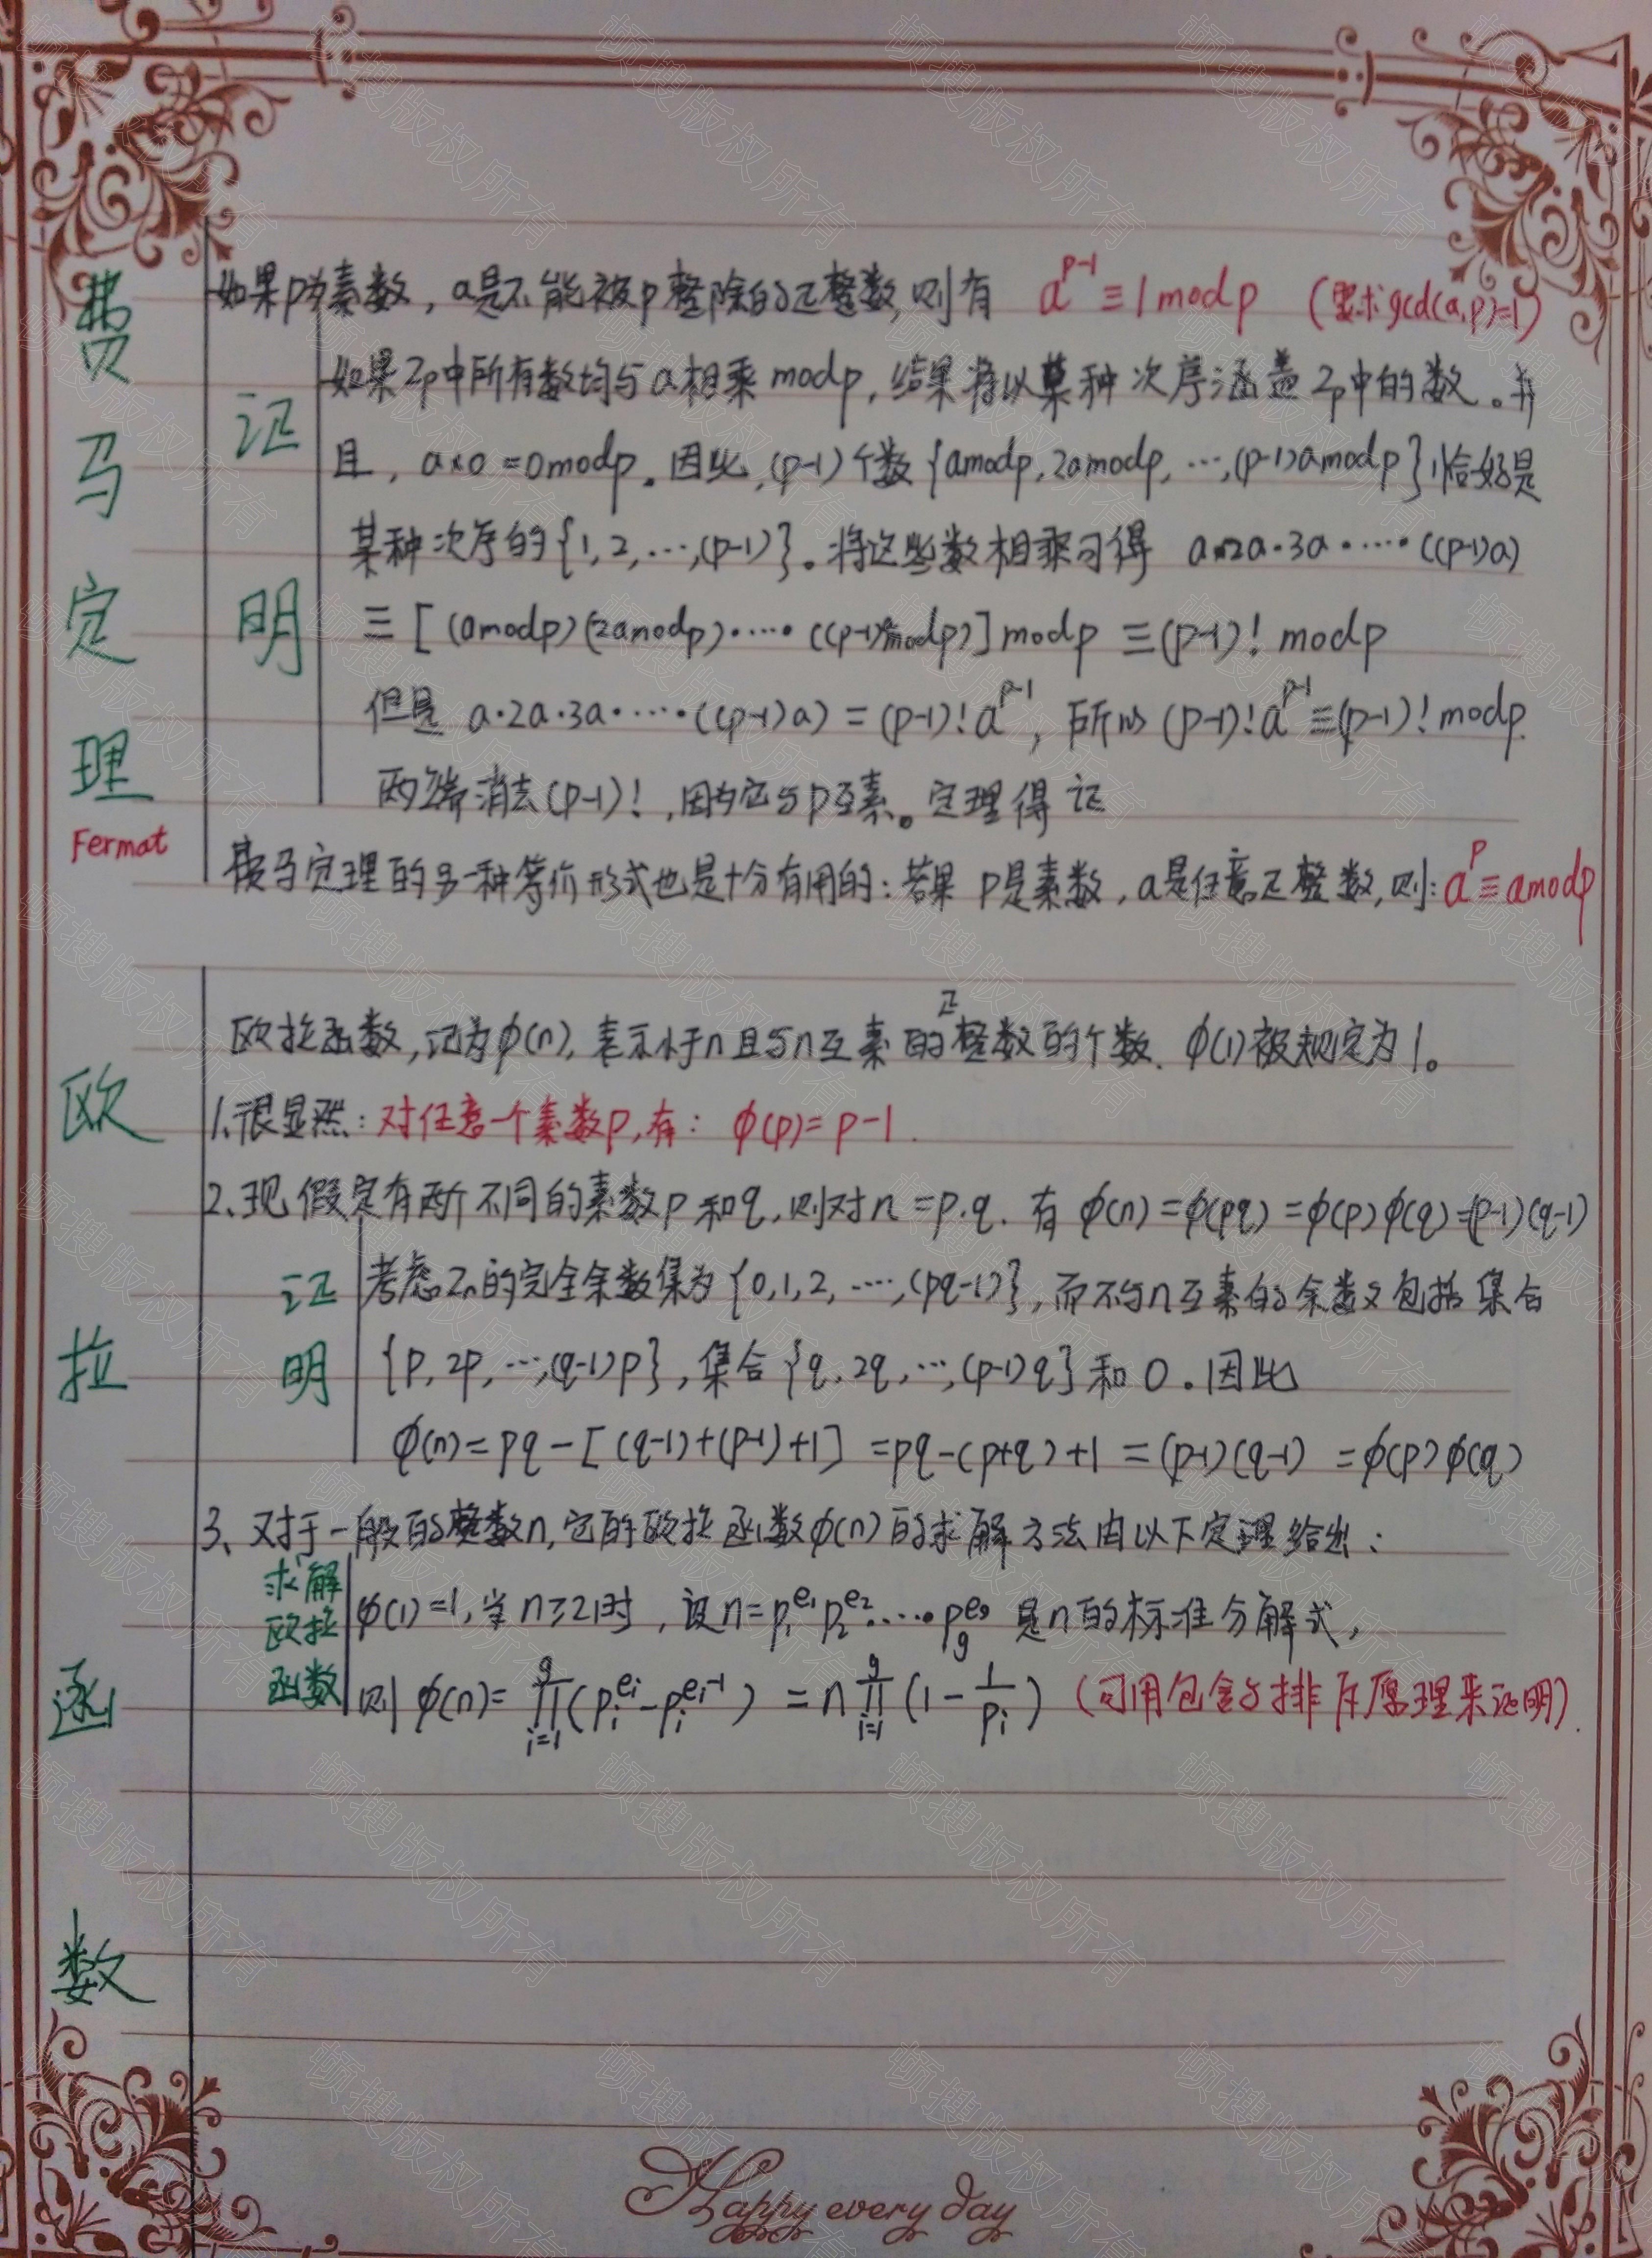 费马定理
Fermat
如果p为素数，a是不能被p整除的正整数，则有 a^{p-1} ≡ 1 mod p （要求gcd(a,p)=1）
证明
如果Zp中所有数均与a相乘modp，结果将以某种次序涵盖Zp中的数。并
且，a×0=0modp。因此，(p-1)个数{amodp, 2amodp, …, (p-1)amodp}恰好是
某种次序的{1, 2, …, (p-1)}。将这些数相乘可得 a·2a·3a·……((p-1)a)
≡[(amodp)(2amodp)·……((p-1)amodp)]modp ≡(p-1)! modp
但是 a·2a·3a·……·((p-1)a) = (p-1)!a^{p-1}，所以 (p-1)!a^{p-1}≡(p-1)! modp.
两端消去(p-1)!，因为它与p互素。定理得证
费马定理的另一种等价形式也是十分有用的：若果 p是素数，a是任意正整数，则：a^p≡amodp
欧拉函数
欧拉函数，记为φ(n)，表示小于n且与n互素的正整数的个数. φ(1)被规定为1。
1、很显然：对任意一个素数p，有：φ(p)=p-1.
2、现假定有两个不同的素数p和q，则对n=p·q. 有 φ(n)=φ(pq)=φ(p)φ(q)=(p-1)(q-1)
证明
考虑Zn的完全余数集为{0,1,2,……,(pq-1)}，而不与n互素的余数又包括集合
{p, 2p, …, (q-1)p}，集合{q, 2q, …, (p-1)q}和0。因此
φ(n)=pq-[(q-1)+(p-1)+1] =pq-(p+q)+1 =(p-1)(q-1) =φ(p)φ(q)
3、对于一般的整数n，它的欧拉函数φ(n)的求解方法由以下定理给出：
求解
欧拉
函数
φ(1)=1，当n≥2时，设n=p_1^{e_1}p_2^{e_2}……p_g^{e_g} 是n的标准分解式，
则 φ(n)=∏_{i=1}^{g}(p_i^{e_i}-p_i^{e_i-1}) =n∏_{i=1}^{g}(1-1/p_i) （可用包含与排斥原理来证明）.
Happy every day
顿搜版权所有